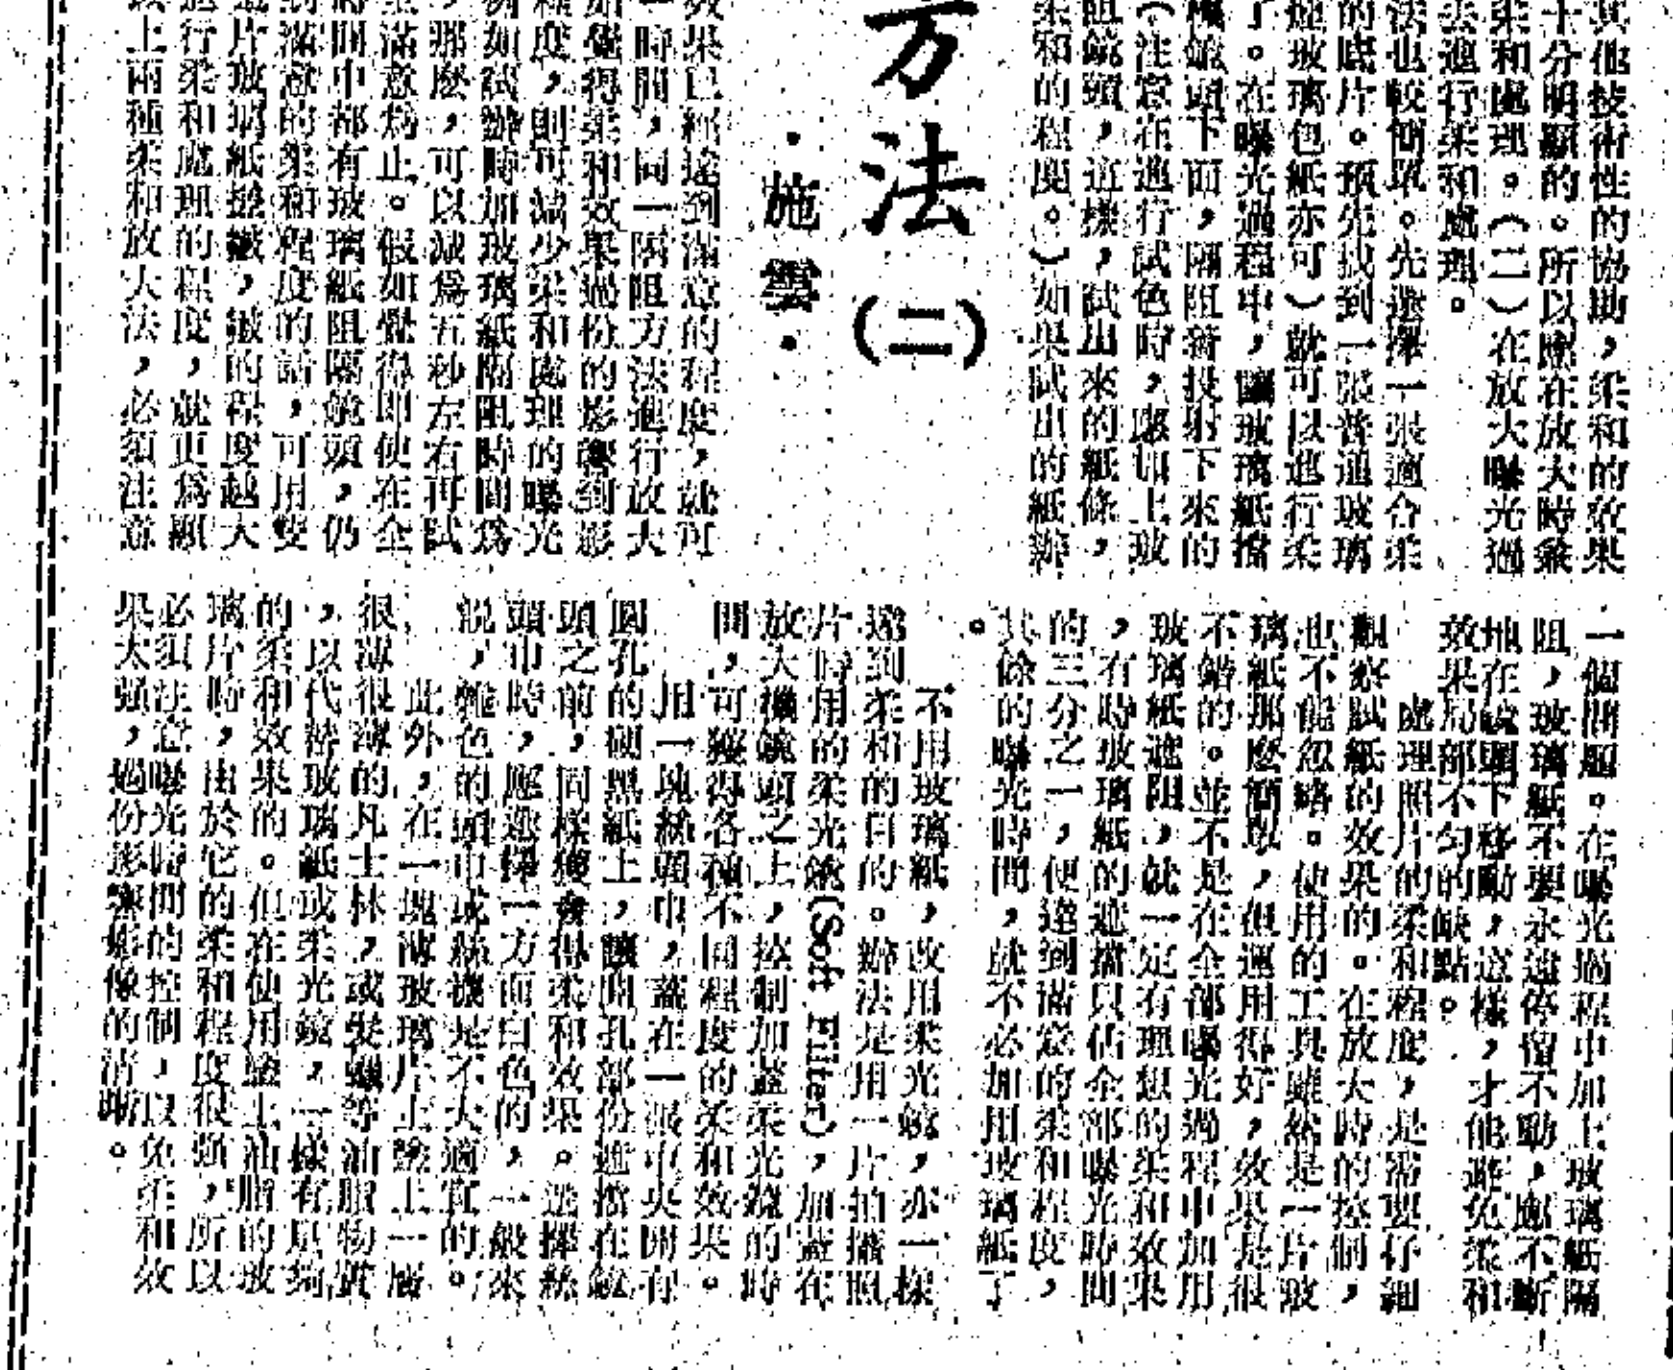 其他技術性的協助，柔和的效果
十分明顯的。所以應在放大時兼
柔和處理。（二）在放大曝光過
去進行柔和處理。
法也較簡單。先選擇一張適合柔
的底片。預先找到一張普通玻璃
煙玻璃包紙亦可）就可以進行柔
了。在曝光過程中，讓玻璃紙擋
機鏡頭下面，隔阻着投射下來的
（注意在進行試色時，應如上玻
阻鏡頭，這樣，試出來的紙條，
柔和的程度。）如果試出的紙辦
方法（二）
·施雲·
效果已經達到滿意的程度，就可
一時間，同一隔阻方法進行放大
如覺得柔和效果過份的影響到影
程度，則可減少柔和處理的曝光
例如試辦時加玻璃紙隔阻時間爲
，那麽，可以減爲五秒左右再試
至滿意爲止。假如覺得即使在全
時間中都有玻璃紙阻隔鏡頭，仍
到滿意的柔和程度的話，可用雙
片玻璃紙搓皺，皺的程度越大
進行柔和處理的程度，就更爲顯
以上兩種柔和放大法，必須注意
一個問題。在曝光過程中加上玻璃紙隔
阻，玻璃紙不要永遠停留不動，應不斷
地在鏡頭下移動，這樣，才能避免柔和
效果局部不匀的缺點。
處理照片的柔和程度，是需要仔細
觀察試紙的效果的。在放大時的控制，
也不能忽略。使用的工具雖然是一片玻
璃紙那麽簡單，但運用得好，效果是很
不錯的。並不是在全部曝光過程中加用
玻璃紙遮阻，就一定有理想的柔和效果
，有時玻璃紙的遮擋只佔全部曝光時間
的三分之一，便達到滿意的柔和程度，
其餘的曝光時間，就不必加用玻璃紙了
。
不用玻璃紙，改用柔光鏡，亦一樣
達到柔和的目的。辦法是用一片拍攝照
片時用的柔光鏡(Soft Filter)，加蓋在
放大機鏡頭之上，控制加蓋柔光鏡的時
間，可獲得各種不同程度的柔和效果。
用一塊絲頭巾，蓋在一張中央開有
圓孔的硬黑紙上，讓開孔部份遮擋在鏡
頭之前，同樣獲得柔和效果。選擇絲
頭巾時，應選擇一方面白色的，一般來
說，雜色的頭巾或絲襪是不大適宜的。
此外，在一塊薄玻璃片上塗上一層
很薄很薄的凡士林，或髮蠟等油脂物質
，以代替玻璃紙或柔光鏡，一樣有異絢
的柔和效果的。但在使用塗上油脂的玻
璃片時，由於它的柔和程度很強，所以
必須注意曝光時間的控制，以免柔和效
果太强，過份影響影像的清晰。